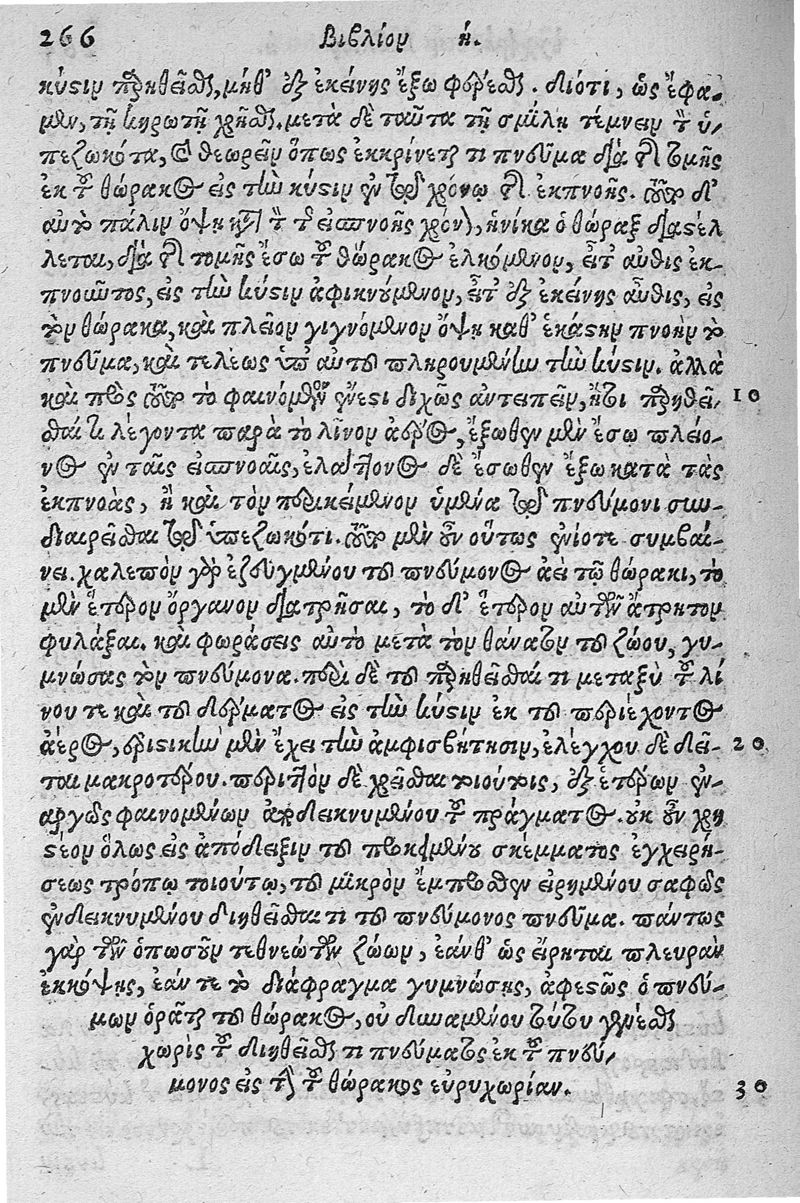 266 Βιβλίον η.
κύστιν παρηθεῖσθαι, μήθ' ἐξ ἐκείνης ἔξω φέρεσθαι. διότι, ὡς ἔφα-
μεν, τῇ κηρωτῇ χρῆσθαι. μετὰ δὲ ταῦτα τῇ σμίλῃ τέμνειν τὸν ὑ-
πεζωκότα, καὶ θεωρεῖν ὅπως ἐκκρίνεταί τι πνεῦμα διὰ τῆς τομῆς
ἐκ τοῦ θώρακος εἰς τὴν κύστιν ἐν τῷ χρόνῳ τῆς ἐκπνοῆς. τοῦτο δ'
αὐτὸ πάλιν ὄψῃ κατὰ τὸν τῆς εἰσπνοῆς χρόνον, ἡνίκα ὁ θώραξ διαστέλ
λεται, διὰ τῆς τομῆς ἔσω τοῦ θώρακος ἑλκόμενον, εἶτ' αὖθις ἐκ-
πνοῦντος, εἰς τὴν κύστιν ἀφικνούμενον, εἶτ' ἐξ ἐκείνης αὖθις, εἰς
τὸν θώρακα, καὶ πλεῖον γιγνόμενον ὄψῃ καθ' ἑκάστην πνοὴν τὸ
πνεῦμα, καὶ τελέως ὑπ' αὐτοῦ πληρουμένην τὴν κύστιν. ἀλλὰ
καὶ πρὸς τοῦτο τὸ φαινόμενον ἔνεστι διχῶς ἀντειπεῖν, ἤτοι παρηθεῖ- 10
σθαί τι λέγοντα παρὰ τὸ λίνον ἀέρος, ἔξωθεν μὲν ἔσω πλείο-
νος ἐν ταῖς εἰσπνοαῖς, ἐλάττονος δὲ ἔσωθεν ἔξω κατὰ τὰς
ἐκπνοὰς, ἢ καὶ τὸν περικείμενον ὑμένα τῷ πνεύμονι συν-
διαιρεῖσθαι τῷ ὑπεζωκότι. τοῦτο μὲν οὖν οὕτως ἐνίοτε συμβαί-
νει. χαλεπὸν γὰρ ἐζευγμένου τοῦ πνεύμονος ἀεὶ τῷ θώρακι, τὸ
μὲν ἕτερον ὄργανον διατρῆσαι, τὸ δ' ἕτερον αὐτῶν ἄτρητον
φυλάξαι. καὶ φωράσεις αὐτὸ μετὰ τὸν θάνατον τοῦ ζώου, γυ-
μνώσας τὸν πνεύμονα. περὶ δὲ τοῦ παρηθεῖσθαί τι μεταξὺ τοῦ λί
νου τε καὶ τοῦ δέρματος εἰς τὴν κύστιν ἐκ τοῦ περιέχοντος
ἀέρος, ἐριστικὴν μὲν ἔχει τὴν ἀμφισβήτησιν, ἐλέγχου δὲ δεῖ- 20
ται μακροτέρου. περιττὸν δὲ χρῆσθαι τοιούτοις, ἐξ ἑτέρων ἐν-
αργῶς φαινομένων ἀποδεικνυμένου τοῦ πράγματος. οὐκ οὖν χρη
στέον ὅλως εἰς ἀπόδειξιν τοῦ προκειμένου σκέμματος ἐγχειρή-
σεως τρόπῳ τοιούτῳ, τοῦ μικρὸν ἔμπροσθεν εἰρημένου σαφῶς
ἐνδεικνυμένου διηθεῖσθαί τι τοῦ πνεύμονος πνεῦμα. πάντως
γὰρ τῶν ὁπωσοῦν τεθνεώτων ζώων, ἐάνθ' ὡς εἴρηται πλευρὰν
ἐκκόψῃς, ἐάν τε τὸ διάφραγμα γυμνώσῃς, ἀφεστὼς ὁ πνεύ-
μων ὁρᾶται τοῦ θώρακος, οὐ δυναμένου τούτου γενέσθαι
χωρὶς τοῦ διηθεῖσθαί τι πνεύματος ἐκ τοῦ πνεύ-
μονος εἰς τὴν τοῦ θώρακος εὐρυχωρίαν. 30